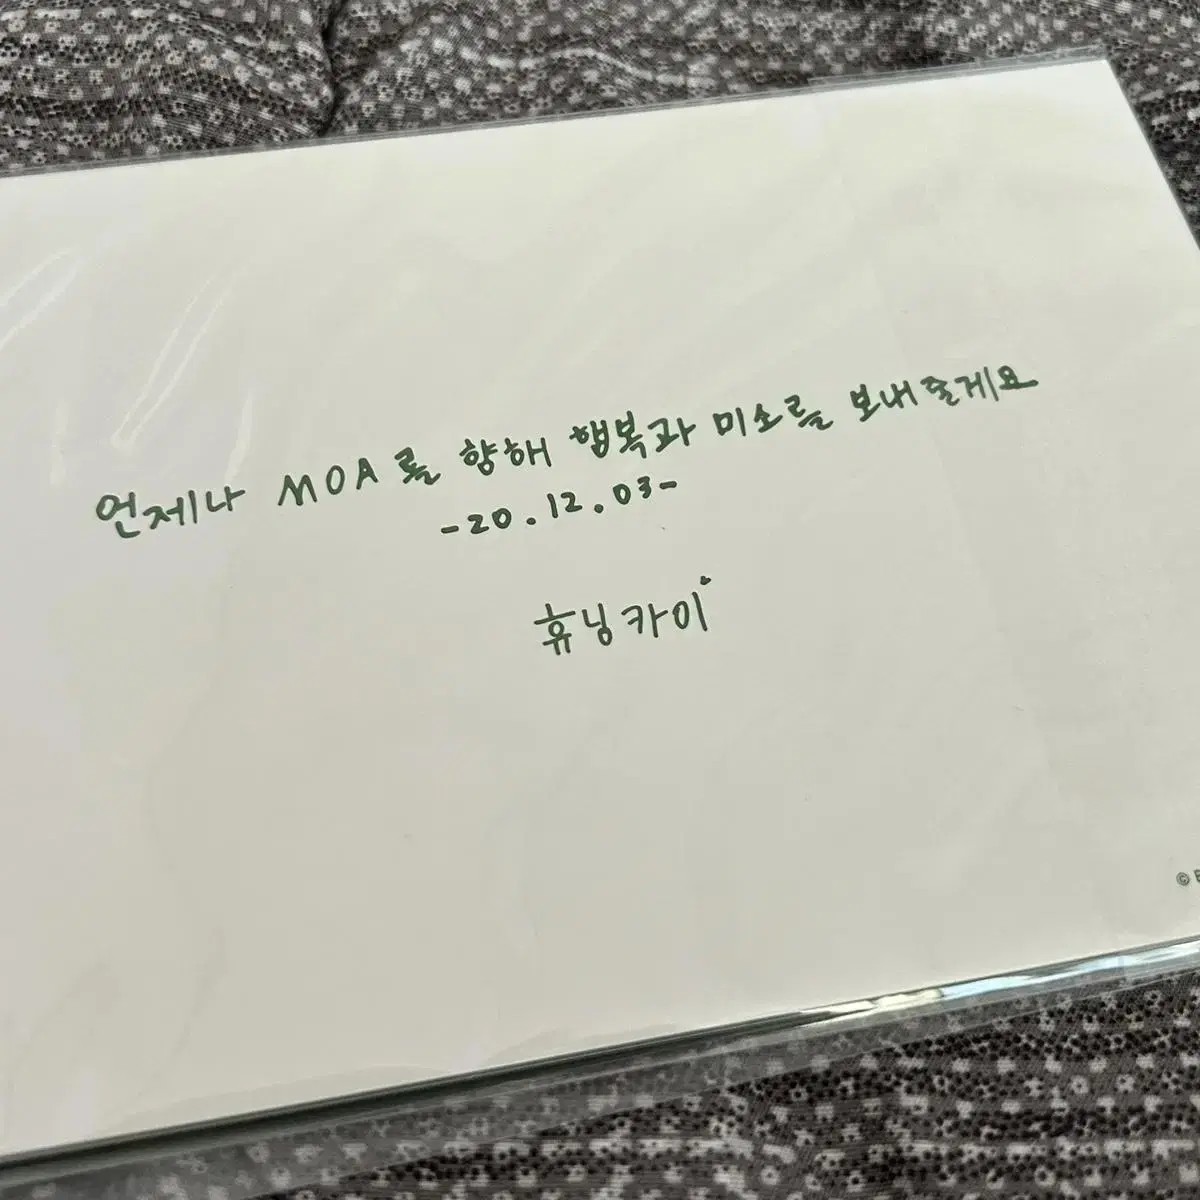 언제나 MOA를 향해 행복과 미소를 보내줄게요
-20.12.03-
휴닝카이
©